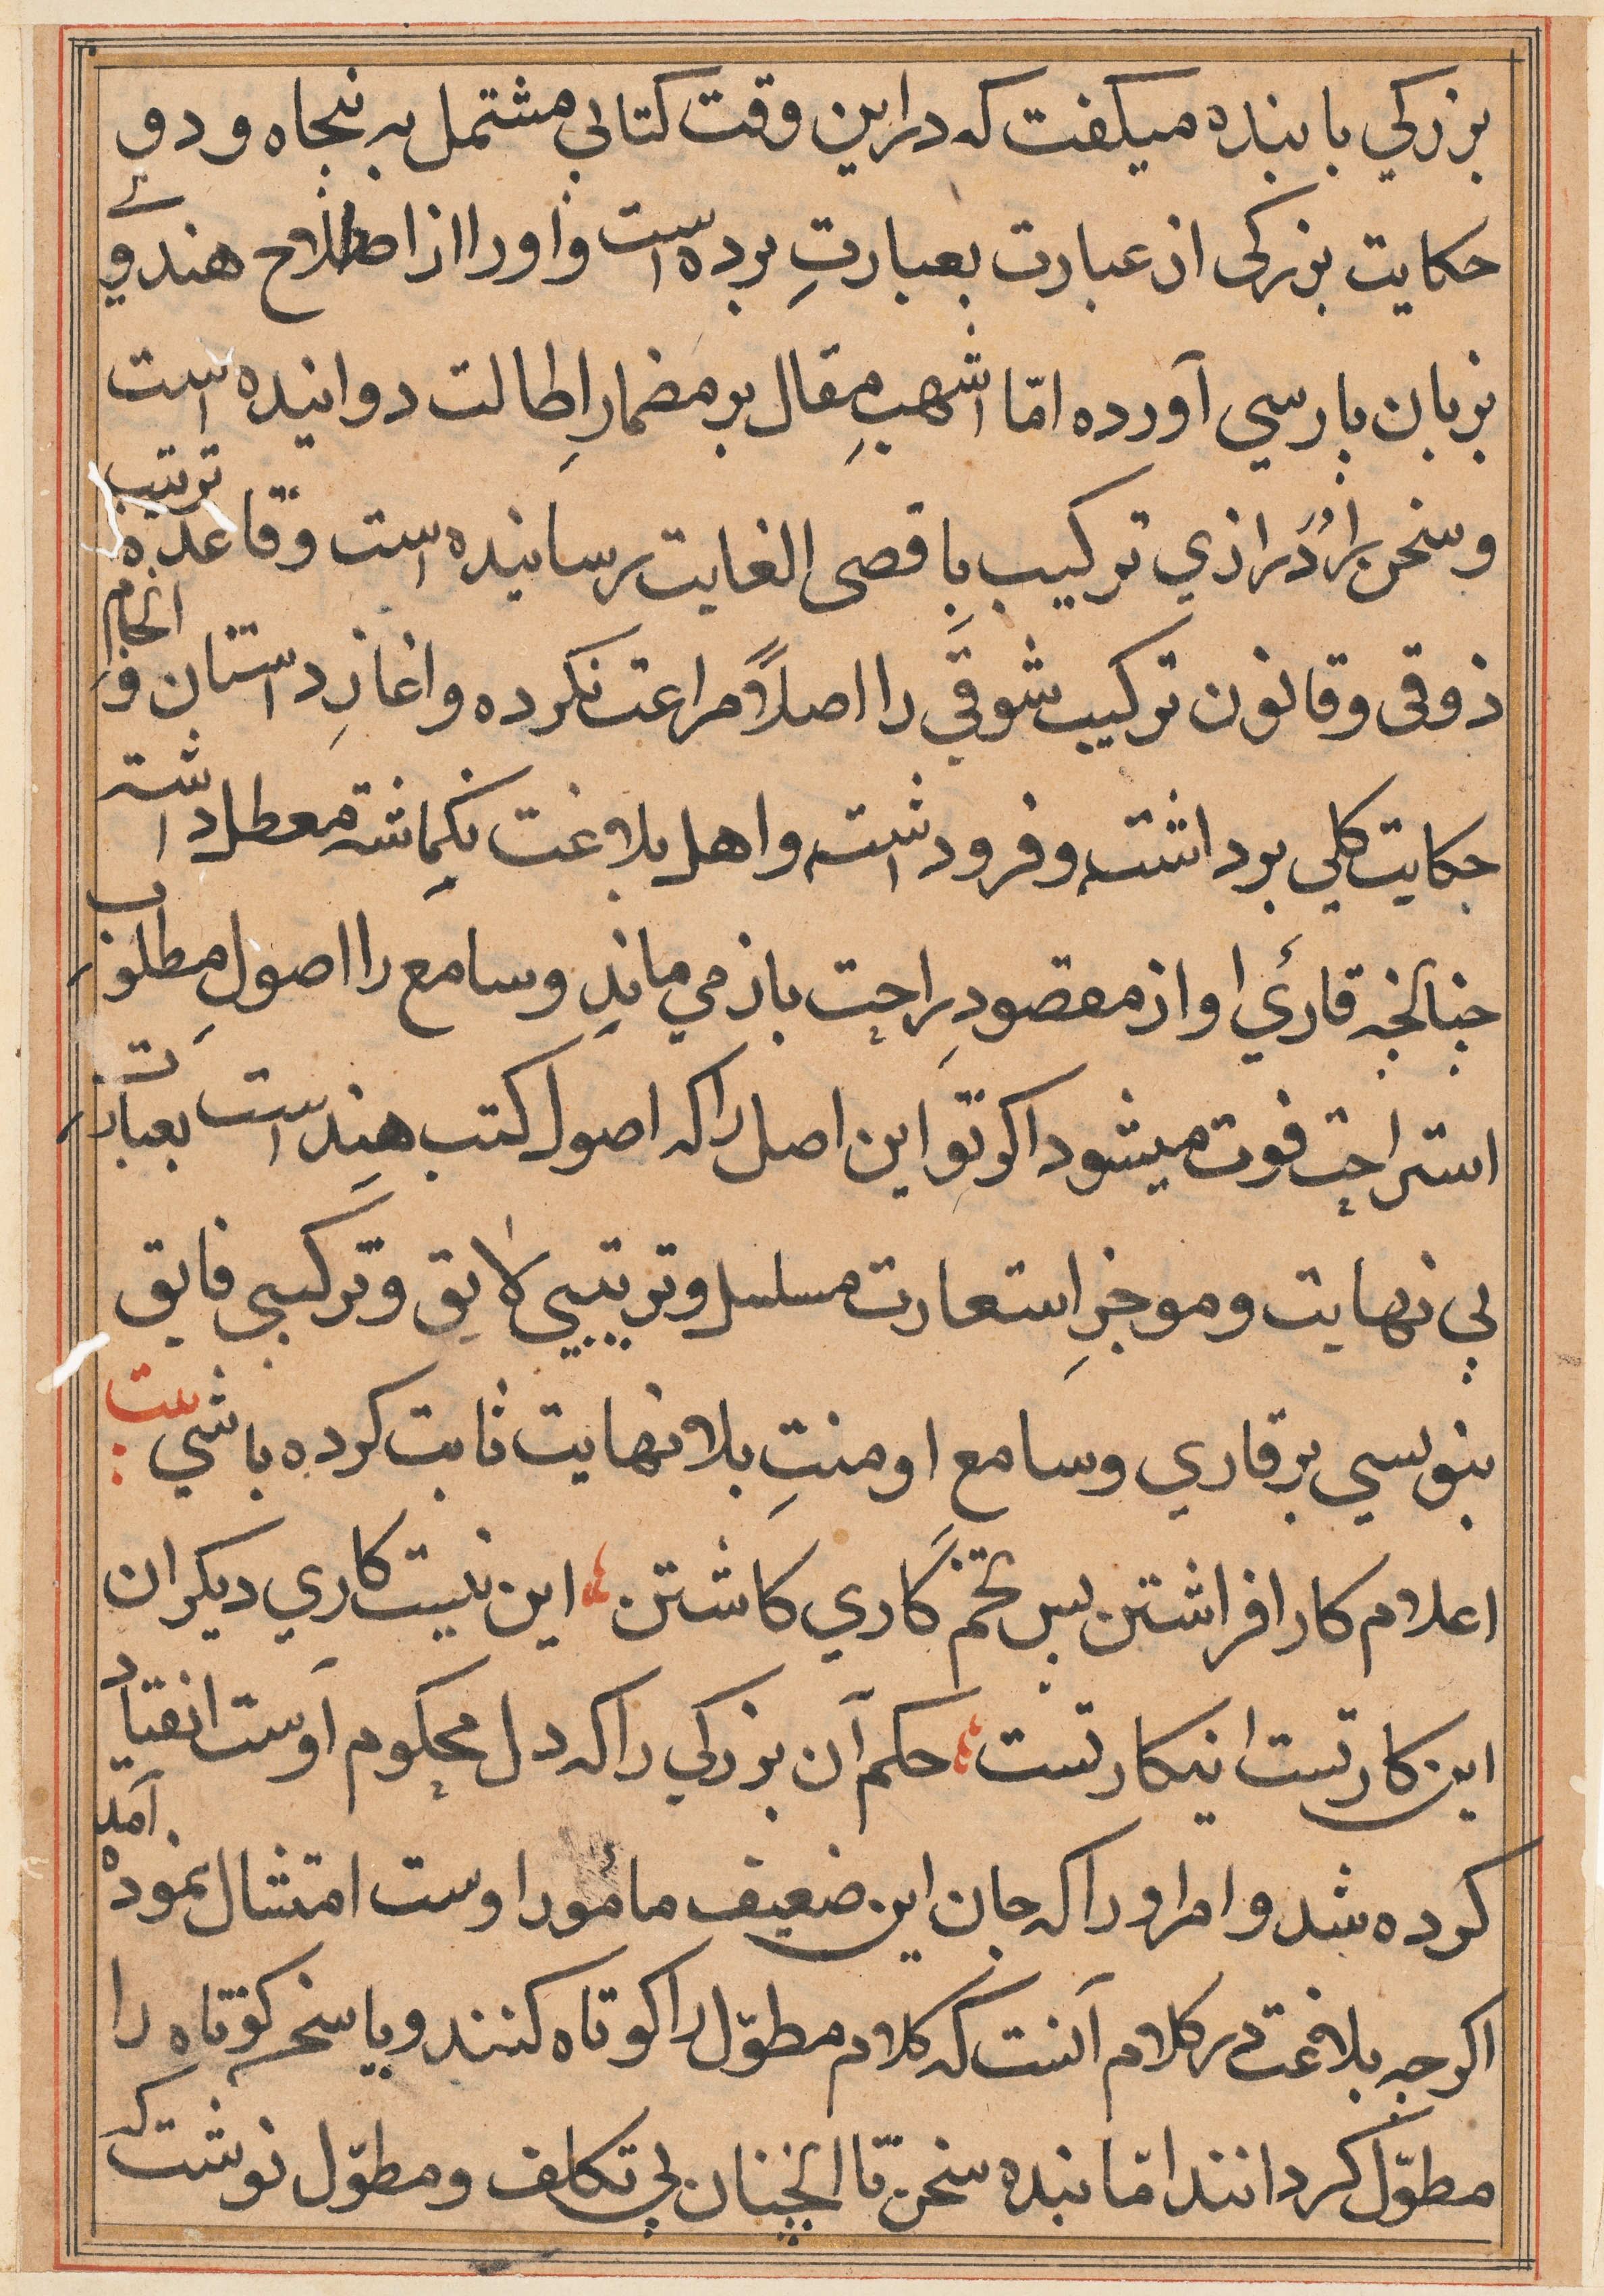 بزرکي با بنده میکفت که در این وقت کتابي مشتمل بر پنجاه و دو
حکایت بزرکی از عبارت بعبارتِ برده است و او را از اصطلاح هندوي
بزبان پارسي آورده امّا اشهبِ مقال بر مضمارِ اطالت دوانیده است
و سخن را دُرازي ترکیب باقصی الغایت رسانیده است و قاعدهٔ ترتیب
ذوقی و قانون ترکیب شوقي را اصلاً مراعت نکرده و اغازِ دستان و انجام
حکایت کلي برداشته و فرود شته و اهل بلاغت بکماشته معطل داشته
چنانچه قارئ او از مقصودِ راحت باز مي ماند و سامع را اصولِ مطلوب
استراحت فوت میشود اکر تو این اصل را که اصول کتب هند است بعبارت
بي نهایت و موجزِ استعارت مسلسل و ترتیبي لایق و ترکیبي فایق
بنویسي بر قاري و سامع او منتِ بلا نهایت ثابت کرده باشي بیت
اعلام کار افراشتن پس تخم کاري کاشتن این نیست کاري دیکران
این کار تست اینکار تست حکم آن بزرکي را که دل محکوم اوست انقیاد
کرده شد و امر او را که جان این ضعیف مأمور اوست امتثال نموده آمد
اکرچه بلاغت در کلام آنست که کلام مطوّل را کوتاه کنند و یا سخن کوتاه را
مطوّل کردانند امّا بنده سخن تا انچنان بي تکلف و مطوّل نوشت که